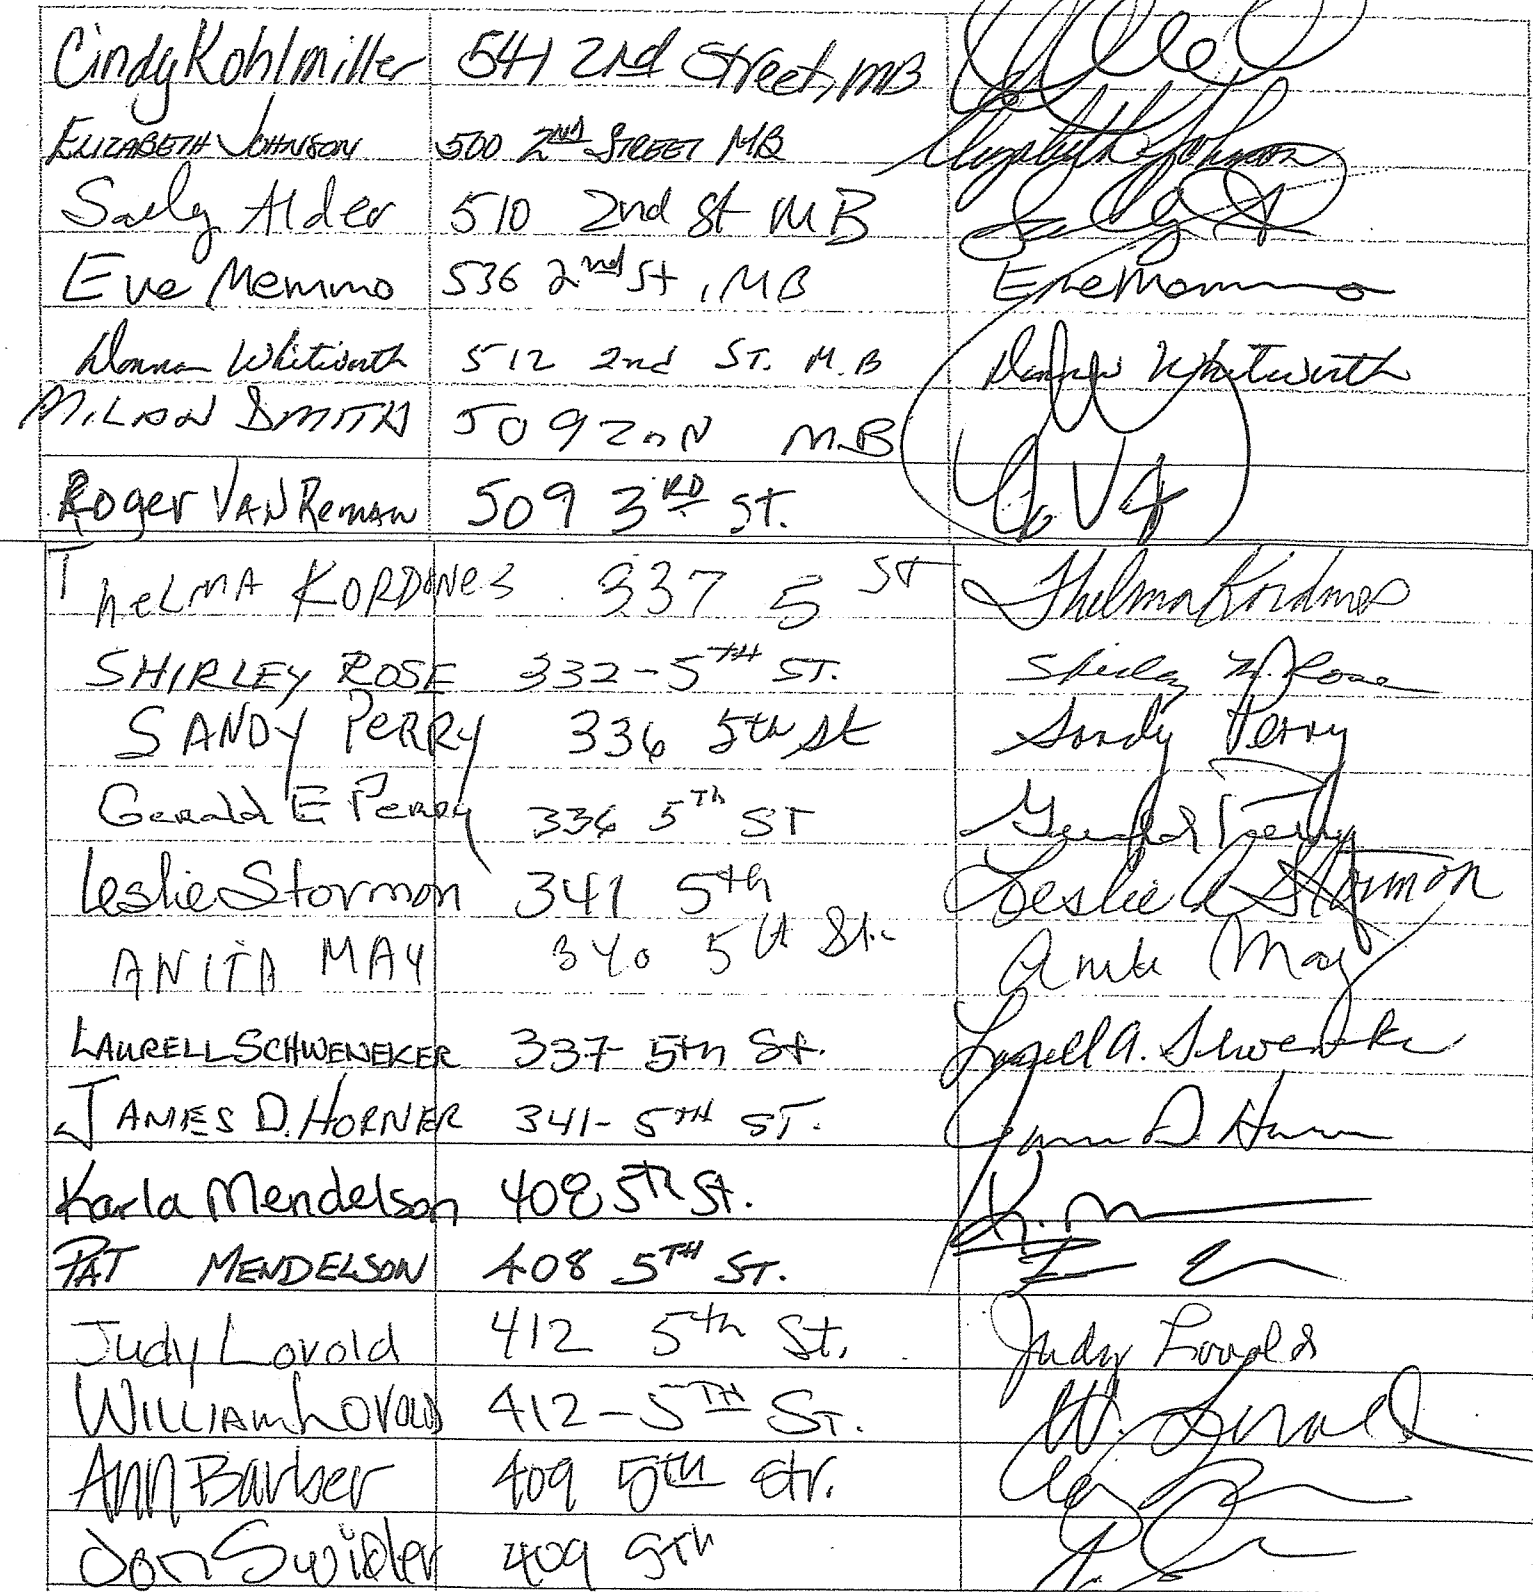 Cindy Kohlmiller 541 2nd Street, MB
ELIZABETH JOHNSON 500 2ND STREET MB Elizabeth Johnson
Sally Alder 510 2nd St MB
Eve Memmo 536 2nd St, MB Eve Memmo
Donna Whitworth 512 2nd ST. M.B Donna Whitworth
MILAN SMITH 509 2nN M.B
Roger VAN Reman 509 3RD ST.
THeLMA KORDMes 337 5 ST Thelma Kordmes
SHIRLEY ROSE 332-5TH ST. Shirley M. Rose
SANDY PERRY 336 5th St Sandy Perry
Gerald E Perry 336 5Th ST Gerald Perry
Leslie Stormon 341 5th Leslie A Stormon
ANITA MAY 340 5th St. Anita May
LAURELL SCHWENEKER 337 5th St. Laurell A. Schweneker
JAMES D. HORNER 341-5TH ST. James D. Horner
Karla Mendelson 408 5Th St. K. M
PAT MENDELSON 408 5TH ST.
Judy Lovold 412 5th St. Judy Lovold
WILLIAM LOVOLD 412-5TH ST. W. Lovold
Ann Barber 409 5th Str.
Jon Swidler 409 5th